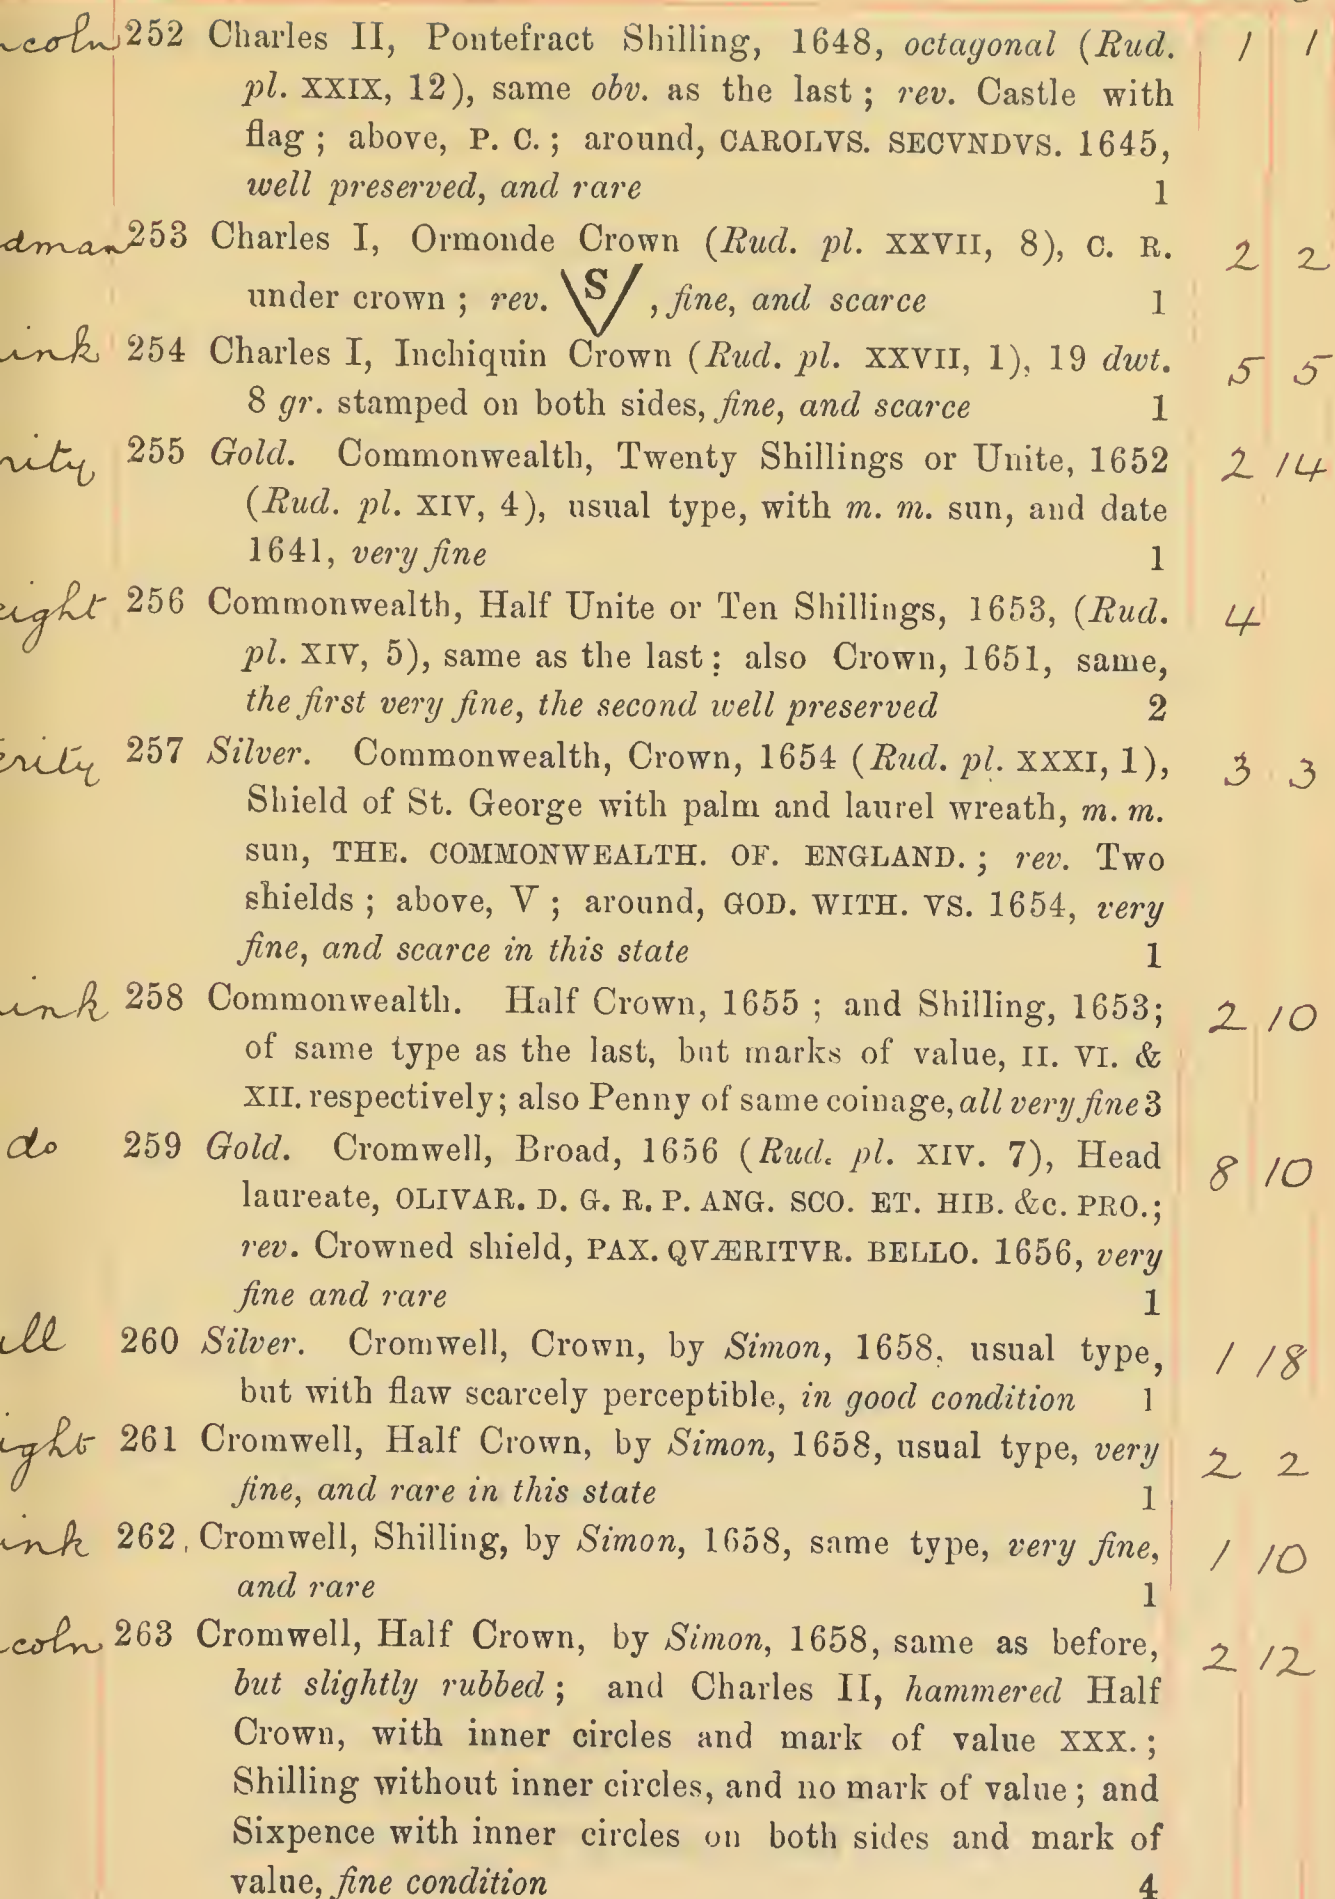 252 Charles II, Pontefract Shilling, 1648, octagonal (Rud. 1 1
pl. XXIX, 12), same obv. as the last; rev. Castle with
flag; above, P. C.; around, CAROLVS. SECVNDVS. 1645,
well preserved, and rare 1
253 Charles I, Ormonde Crown (Rud. pl. XXVII, 8), C. R. 2 2
under crown; rev. S, fine, and scarce 1
ink 254 Charles I, Inchiquin Crown (Rud. pl. XXVII, 1), 19 dwt. 5 5
8 gr. stamped on both sides, fine, and scarce 1
rity 255 Gold. Commonwealth, Twenty Shillings or Unite, 1652 2 14
(Rud. pl. XIV, 4), usual type, with m. m. sun, and date
1641, very fine 1
eight 256 Commonwealth, Half Unite or Ten Shillings, 1653, (Rud. 4
pl. XIV, 5), same as the last: also Crown, 1651, same,
the first very fine, the second well preserved 2
erity 257 Silver. Commonwealth, Crown, 1654 (Rud. pl. XXXI, 1), 3 3
Shield of St. George with palm and laurel wreath, m. m.
sun, THE. COMMONWEALTH. OF. ENGLAND.; rev. Two
shields; above, V; around, GOD. WITH. VS. 1654, very
fine, and scarce in this state 1
ink 258 Commonwealth. Half Crown, 1655; and Shilling, 1653; 2 10
of same type as the last, but marks of value, II. VI. &
XII. respectively; also Penny of same coinage, all very fine 3
do 259 Gold. Cromwell, Broad, 1656 (Rud. pl. XIV. 7), Head 8 10
laureate, OLIVAR. D. G. R. P. ANG. SCO. ET. HIB. &c. PRO.;
rev. Crowned shield, PAX. QVÆRITVR. BELLO. 1656, very
fine and rare 1
ll 260 Silver. Cromwell, Crown, by Simon, 1658, usual type, 1 18
but with flaw scarcely perceptible, in good condition 1
ight 261 Cromwell, Half Crown, by Simon, 1658, usual type, very 2 2
fine, and rare in this state 1
ink 262 Cromwell, Shilling, by Simon, 1658, same type, very fine, 1 10
and rare 1
coln 263 Cromwell, Half Crown, by Simon, 1658, same as before, 2 12
but slightly rubbed; and Charles II, hammered Half
Crown, with inner circles and mark of value XXX.;
Shilling without inner circles, and no mark of value; and
Sixpence with inner circles on both sides and mark of
value, fine condition 4